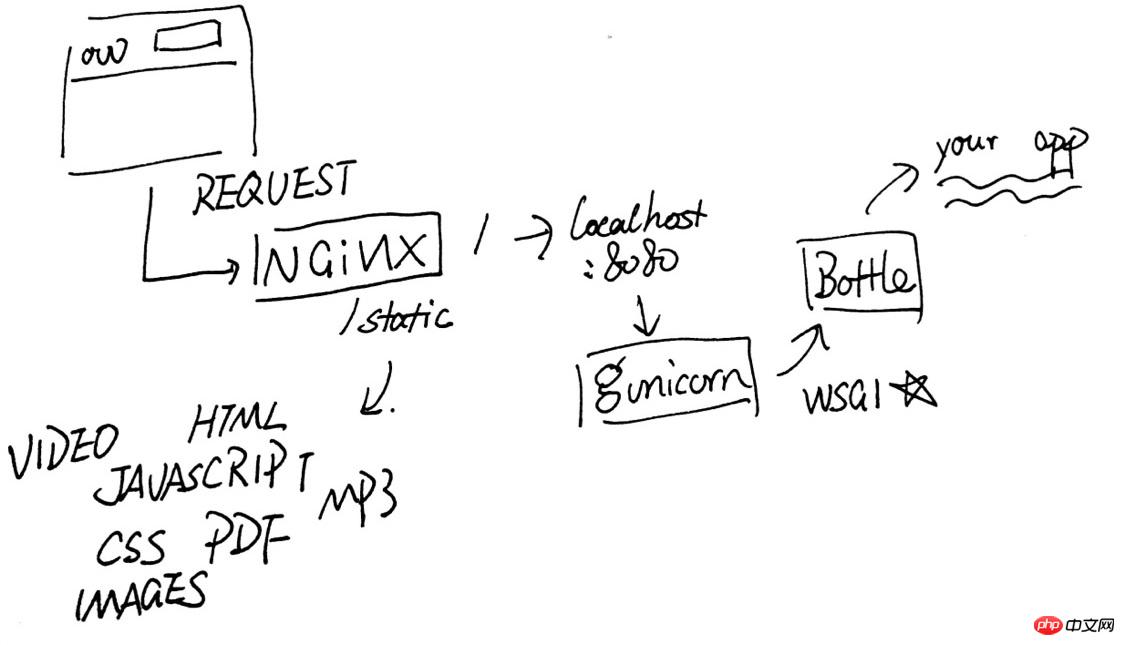 REQUEST
NGiNX
/ → localhost
:8080
/static
your app
Bottle
gunicorn
WSGI ☆
HTML
VIDEO
JAVASCRIPT
MP3
CSS PDF
IMAGES
php 中文网